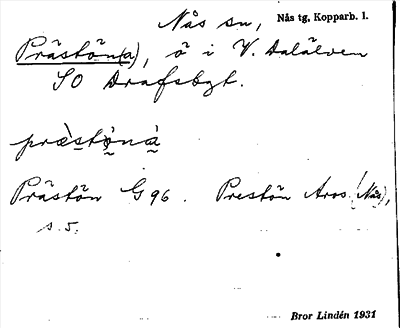 Nås sn, Nås tg, Kopparb. l.
Prästön(a), ö i V. Dalälven
SO Drafsbgt.
præ̀stö̀nà
Prästön G 96. Prestön Aros (Nås),
s. 5.
Bror Lindén 1931